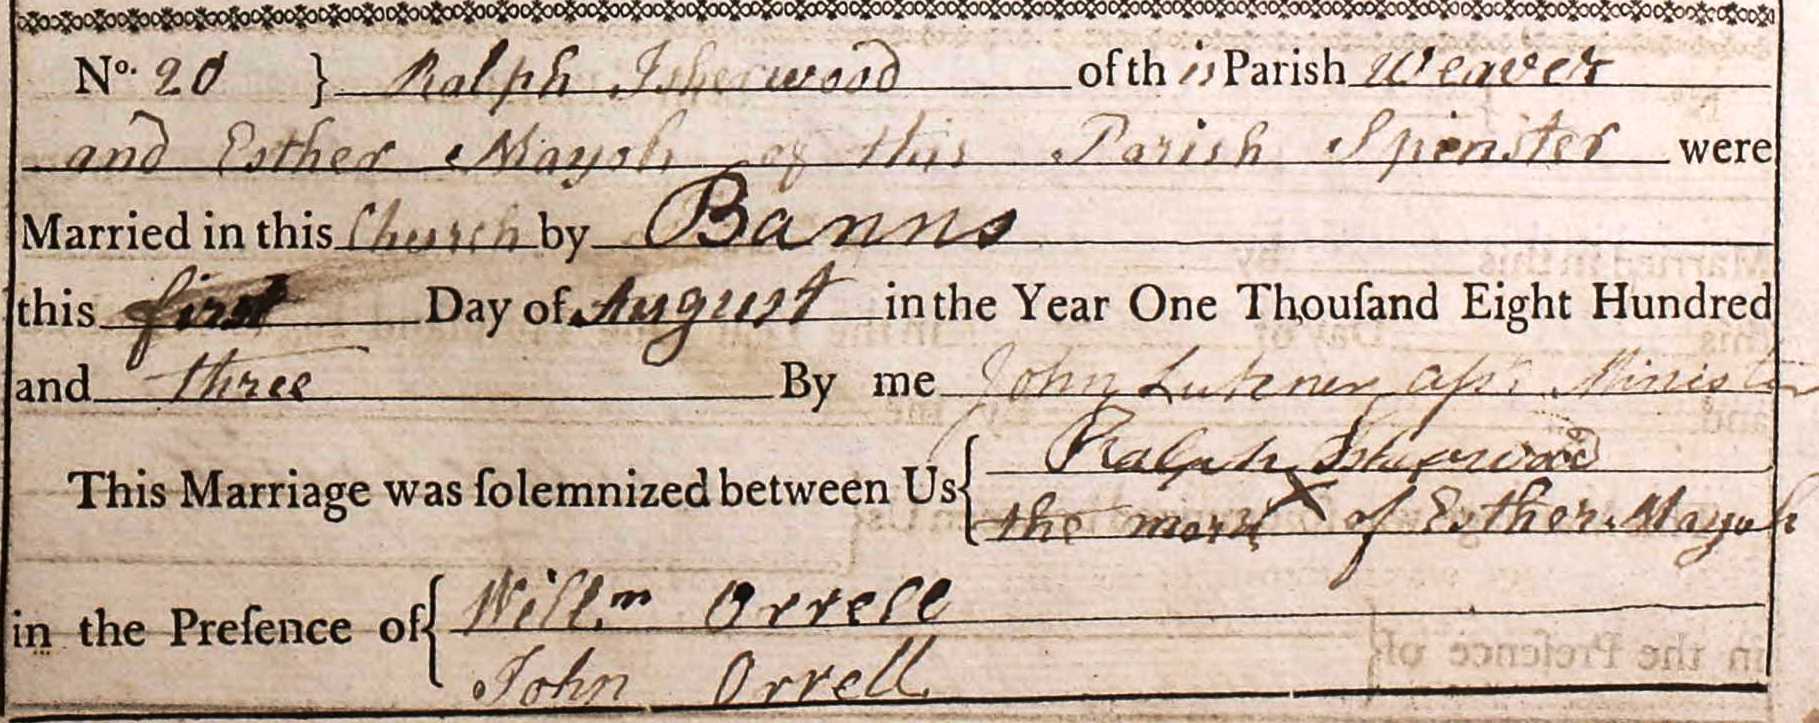 No. 20 } Ralph Isherwood of this Parish Weaver
and Esther Mayoh of this Parish Spinster were
Married in this Church by Banns
this first Day of August in the Year One Thouſand Eight Hundred
and three By me John Lutener Aſst Minister
This Marriage was ſolemnized between Us { Ralph Isherwood
the mark X of Esther Mayoh
in the Preſence of { Willm Orrell
John Orrell